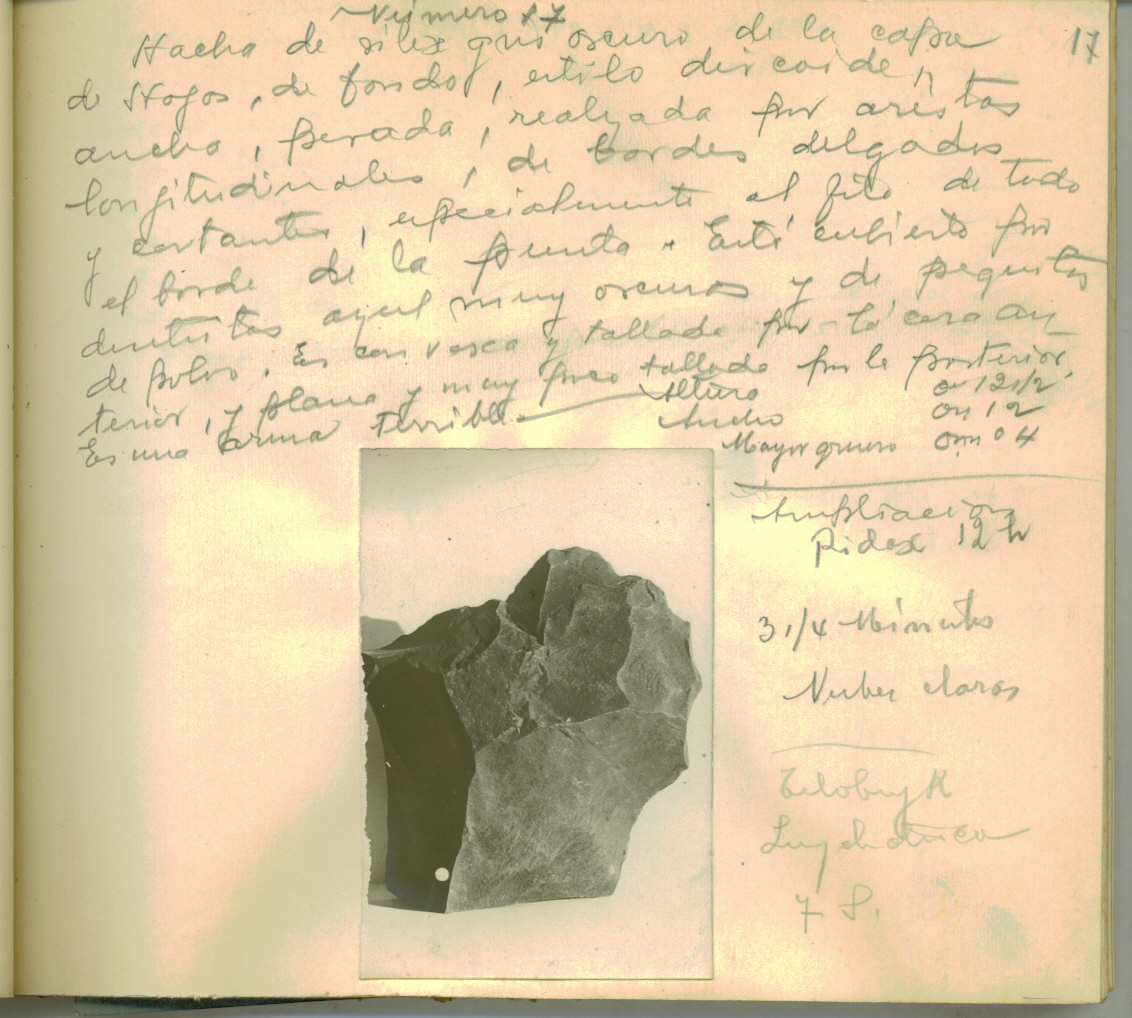 Número 17
17
Hacha de silex gris oscuro de la capa
de Hogos, de fondo, estilo discoide,
ancha, pesada, realzada por aristas
longitudinales, de bordes delgados
y cortantes, especialmente al filo de todo
el borde de la punta. Está cubierto por
dentritas azul muy oscuras y de pequeñas
de polvo. Es convexa y tallada por la cara an_
terior, y plana y muy poco tallada por la posterior
Es una arma terrible
Altura 0m 12 1/2
Ancho 0m 12
Mayor grueso 0m 04
Ampliacion
Ridax 12 h
3 1/4 Minutos
Nubes claras
Luz electrica
7 S.